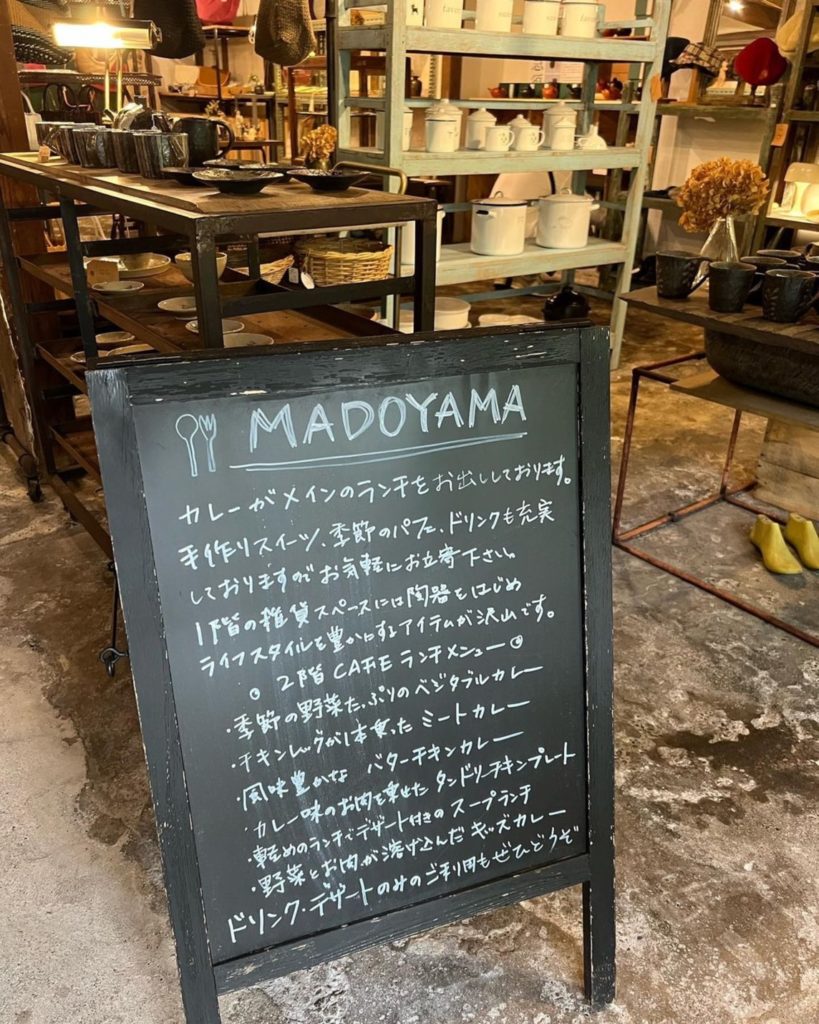 MADOYAMA
カレーがメインのランチをお出ししております。
手作りスイーツ、季節のパフェ、ドリンクも充実
しておりますのでお気軽にお立寄下さい。
1階の雑貨スペースには陶器をはじめ
ライフスタイルを豊かにするアイテムが沢山です。
2階 CAFE ランチメニュー
・季節の野菜たっぷりのベジタブルカレー
・チキンレッグが1本乗った ミートカレー
・風味豊かな バターチキンカレー
・カレー味のお肉を乗せた タンドリーチキンプレート
・軽めのランチ、デザート付きの スープランチ
・野菜とお肉が溶け込んだ キッズカレー
ドリンク・デザートのみのご利用もぜひどうぞ